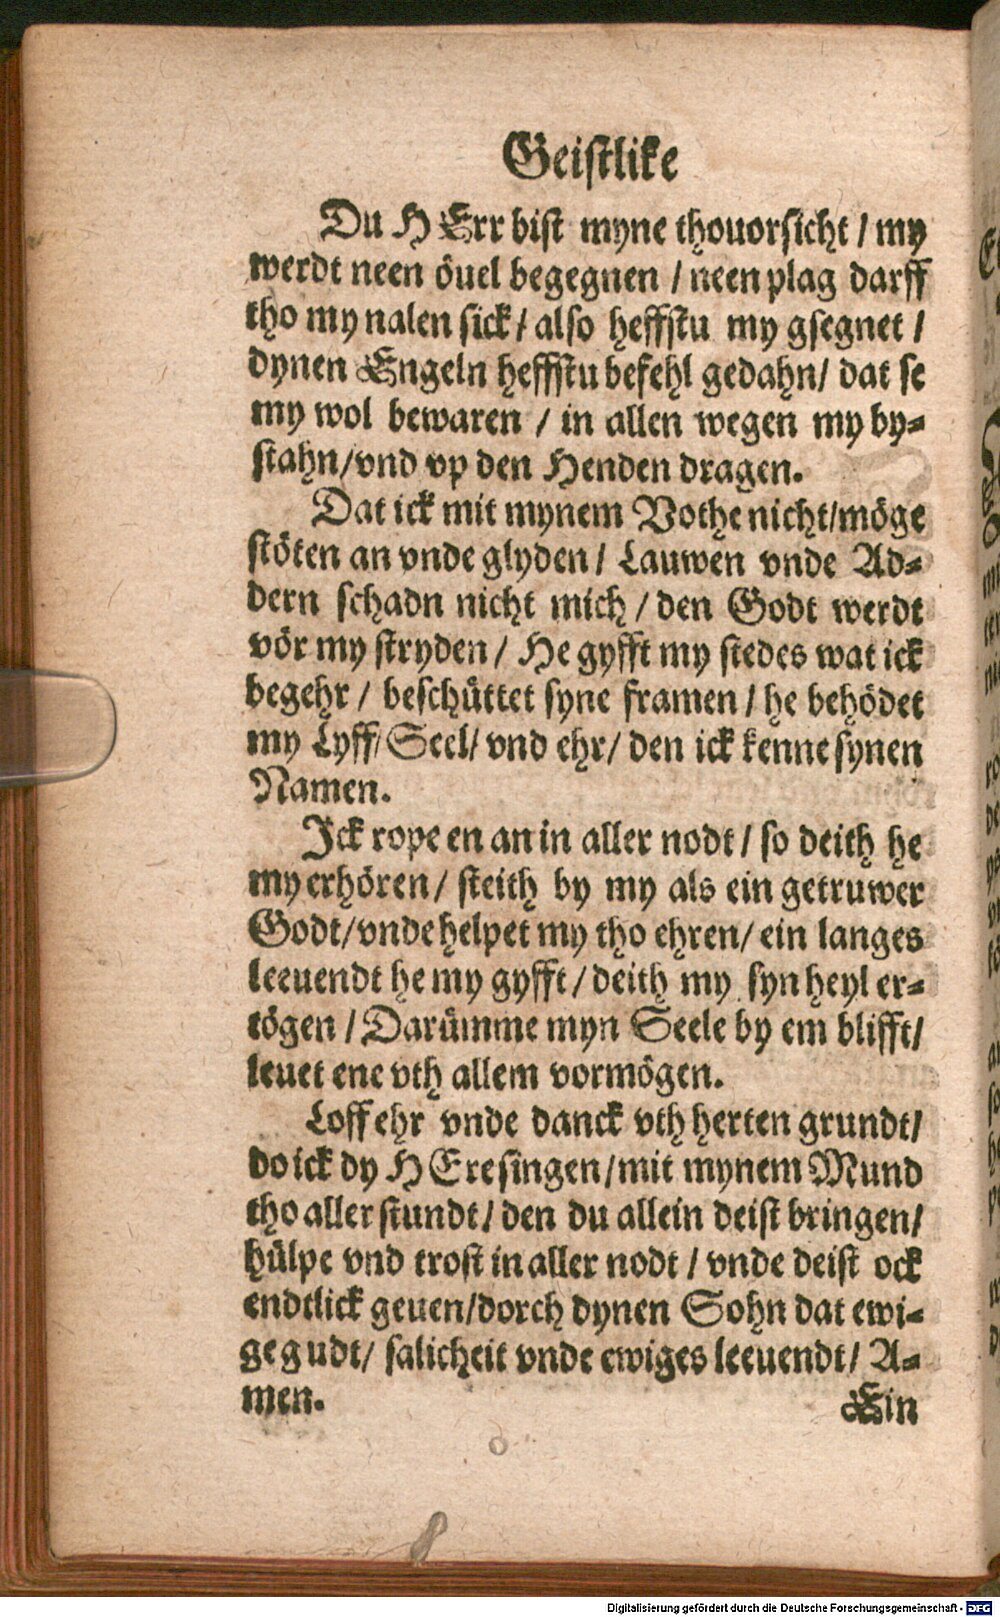 Geistlike
Du HErr bist myne thouorsicht / my
werdt neen öuel begegnen / neen plag darff
tho my nalen sick / also heffstu my gsegnet /
dynen Engeln heffstu befehl gedahn / dat se
my wol bewaren / in allen wegen my by=
stahn / vnd vp den Henden dragen.
Dat ick mit mynem Vothe nicht / möge
stöten an vnde glyden / Lauwen vnde Ad=
dern schadn nicht mich / den Godt werdt
vör my stryden / He gyfft my stedes wat ick
begehr / beschüttet syne framen / he behödet
my Lyff / Seel / vnd ehr / den ick kenne synen
Namen.
Ick rope en an in aller nodt / so deith he
my erhören / steith by my als ein getruwer
Godt / vnde helpet my tho ehren / ein langes
leeuendt he my gyfft / deith my syn heyl er=
tögen / Darümme myn Seele by em blifft /
leuet ene vth allem vormögen.
Loff ehr vnde danck vth herten grundt /
do ick dy HEre singen / mit mynem Mund
tho aller stundt / den du allein deist bringen /
hülpe vnd trost in aller nodt / vnde deist ock
endtlick geuen / dorch dynen Sohn dat ewi=
ge gudt / salicheit vnde ewiges leeuendt / A=
men.
Ein
Digitalisierung gefördert durch die Deutsche Forschungsgemeinschaft - DFG